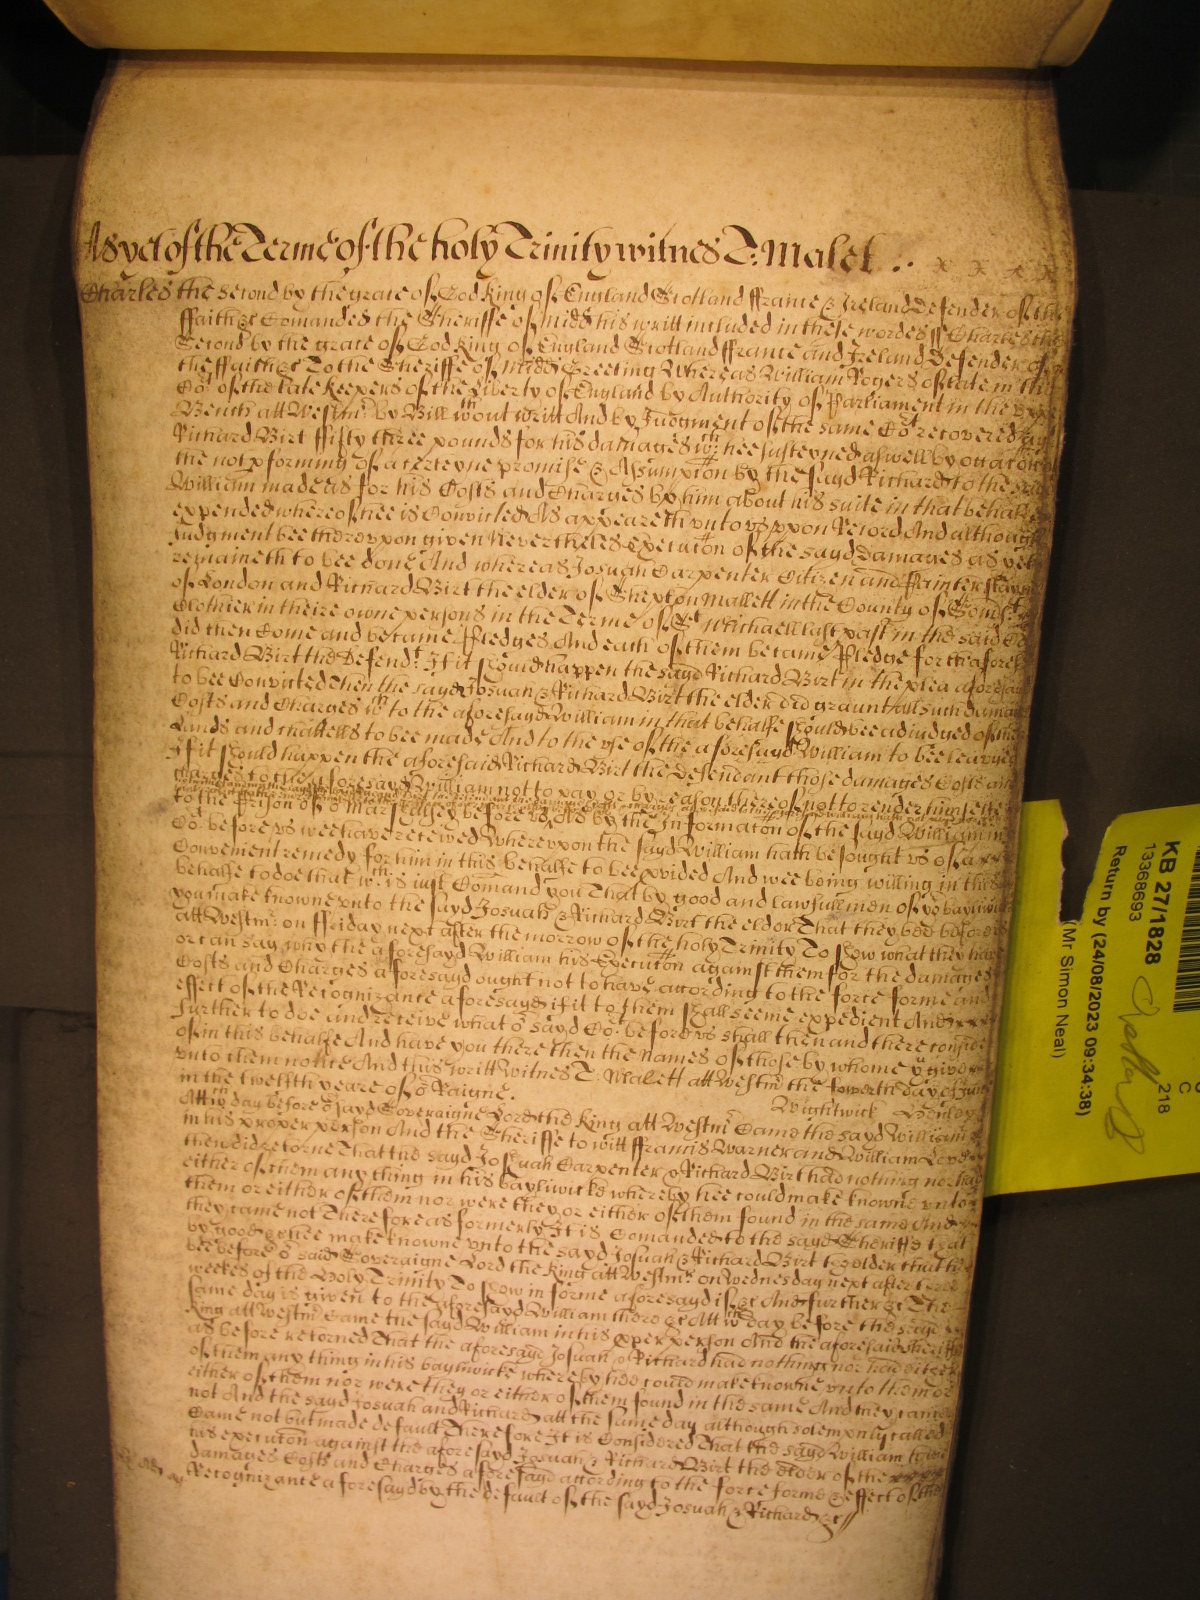 As yet of the Terme of the holy Trinity witnes T: Malet .. x x x x
Charles the second by the grace of God King of England Scotland ffrance & Ireland Defender of the
ffaith &c Comanded the Sheriffe of Midd his writt included in these wordes ss Charles the
Second by the grace of God King of England Scotland ffrance and Ireland Defender of
the ffaith &c To the Sheriffe of Midd Greeting Whereas William Rogers of late in the
Co:t of the late Keepers of the Liberty of England by Authority of Parliament in the upper
Bench att Westm:r by Bill wthout writt And by Judgment of the same Co:t recovered
Richard Birt ffifty three pounds for his damages wch hee susteyned aswell by occacon
the not pforming of a certeyne promise & Assumpcon by the sayd Richard to the sayd
William made as for his Costs and Charges by him about his suite in that behalfe
expended whereof hee is Convicted As appeareth unto us uppon Record And although
Judgment bee thereuppon given Nevertheles Execucon of the sayd damages as yet
remaineth to bee done And whereas Josuah Carpenter Citizen and Painter
of London and Richard Birt the elder of Shepton Mallett in the County of
Clothier in theire owne persons in the Terme of St Michaell last past in the said Co:t
did then Come and became Pledges And each of them became Pledge for the afores
Richard Birt the Defend:t If it should happen the sayd Richard Birt in the plea aforesayd
to bee Convicted Then the sayd Josuah & Richard Birt the elder did graunt all such damages
Costs and Charges wch to the aforesayd William in that behalfe should bee adiudged of their
Lands and chattells to bee made And to the use of the aforesayd William to bee leavyed
if it should happen the aforesaid Richard Birt the Defendant those damages Costs and
charges to the aforesayd William not to pay or by reason thereof not to render himselfe
to the Prison of o:r Marshalsey before us As by the Informacon of the sayd William in
Co:t before us wee have received Whereupon the sayd William hath besought us of a
Convenient remedy for him in this behalfe to bee pvided And wee being willing in this
behalfe to doe that wch is iust Comand you That by good and lawfull men of yo:r bayliwicke
you make knowne unto the sayd Josuah & Richard Birt the eldor That they bee before us
att Westm:r on ffriday next after the morrow of the holy Trinity To show what they have
or can say why the aforesayd William his Execucon against them for the damages
Costs and Charges aforesayd ought not to have according to the force forme and
effect of the Recognizance aforesayd if it to them shall seeme expedient And
further to doe and receive what o:r sayd Co:t before us shall then and there consider
of in this behalfe And have you there then the names of those by whome y give
unto them notice And this writt Witnes T: Malett att Westm:r the fowerth day of June
in the twelfth yeare of o:r Raigne.
Wightwick Henley
Att wch day before o:r sayd Soveraigne Lord the King att Westm:r Came the sayd William
in his proper person And the Sheriffe to witt ffrancis Warner and William Love
then did retorne That the sayd Josuah Carpenter & Richard Birt had nothing nor had
either of them any thing in his bayliwicke whereby hee could make knowne unto
them or either of them nor were they or either of them found in the same And
they came not Therefore as formerly It is Comanded to the sayd Sheriffe that
by good &c hee make knowne unto the sayd Josuah & Richard Birt the elder that they
bee before o:r said Soveraigne Lord the King att Westm:r on Wednesday next after three
weekes of the Holy Trinity To show in forme aforesayd if &c And further &c The
same day is given to the aforesayd William there &c Att wch day before the sayd
King att Westm:r Came the sayd William in his pper person And the aforesaid Sheriffe
as before retorned That the aforesayd Josuah & Richard had nothing nor had either
of them any thing in his bayliwicke whereby hee could make knowne unto them or
either of them nor were they or either of them found in the same And they came
not And the sayd Josuah and Richard att the same day although solempnly called
Came not but made default Therefore It is Considered That the sayd William have
his execucon against the aforesayd Josuah & Richard Birt the elder of the
damages Costs and Charges aforesayd according to the force forme & effect of the
Recognizance aforesayd by the default of the sayd Josuah & Richard &c
KB 27/1828
13368693
Return by (24/08/2023 09:34:38)
(Mr Simon Neal)
C
218